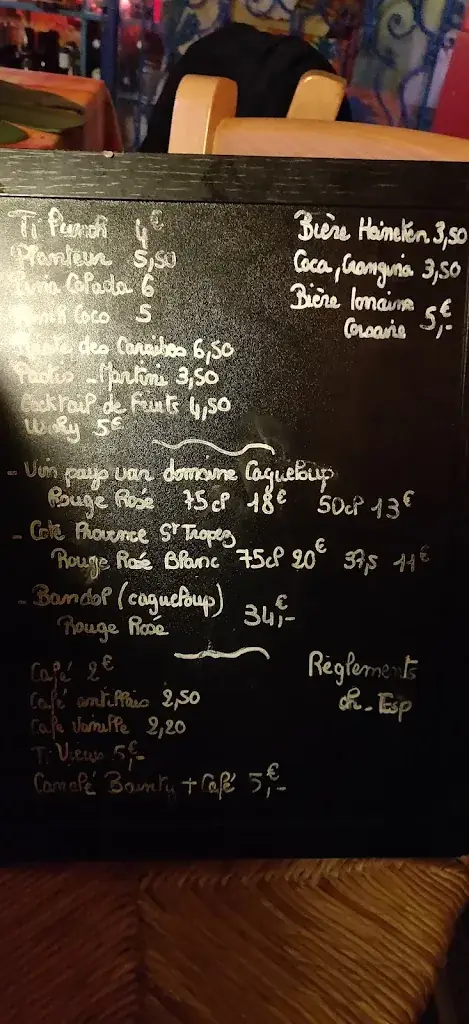 Ti Punch 4€
Planteur 5,50
Pina Colada 6
Punch Coco 5
des Caraibes 6,50
Pastis - Martini 3,50
Cocktail de Fruits 4,50
Wisky 5€
Bière Heineken 3,50
Coca, Orangina 3,50
Bière
Corsaire 5,€-
- Vin pays var domaine Cagueloup
Rouge Rosé 75cl 18€ 50cl 13€
- Cote Provence St Tropez
Rouge Rosé Blanc 75cl 20€ 37,5 11€
- Bandol (cagueloup)
Rouge Rosé 34,€-
Café 2€
Café antillais 2,50
Cafe Vanille 2,20
Ti Vieux 5,€-
Bounty + Café 5,€-
Règlements
ch - Esp